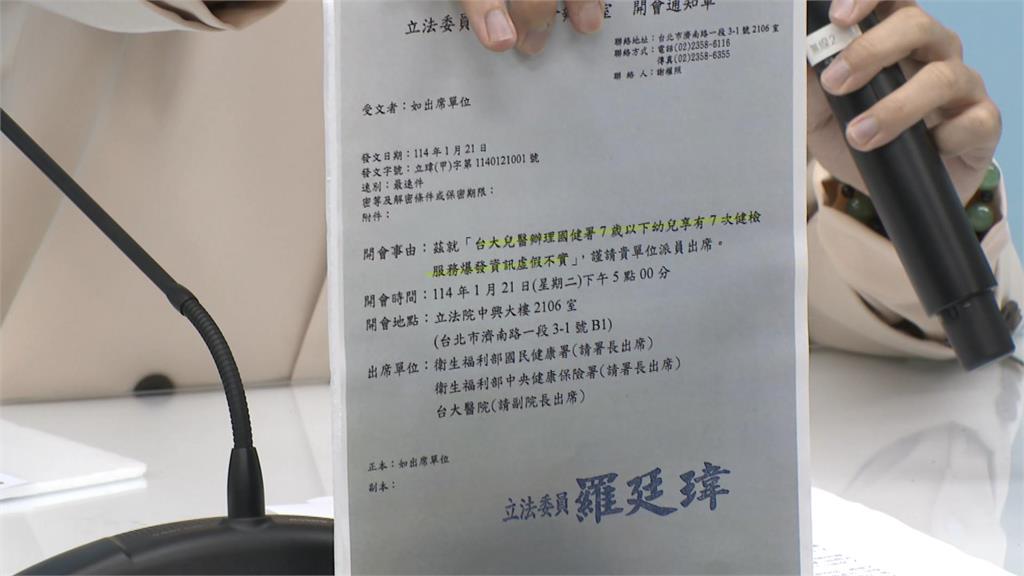 立法委員 室 開會通知單
聯絡地址：台北市濟南路一段3-1號2106室
聯絡方式：電話(02)2358-6116
傳真(02)2358-6355
聯絡人：謝耀照
受文者：如出席單位
發文日期：114年1月21日
發文字號：立瑋(甲)字第1140121001號
速別：最速件
密等及解密條件或保密期限：
附件：
開會事由：茲就「台大兒醫辦理國健署7歲以下幼兒享有7次健檢
服務爆發資訊虛假不實」，謹請貴單位派員出席。
開會時間：114年1月21日(星期二)下午5點00分
開會地點：立法院中興大樓2106室
(台北市濟南路一段3-1號B1)
出席單位：衛生福利部國民健康署(請署長出席)
衛生福利部中央健康保險署(請署長出席)
台大醫院(請副院長出席)
正本：如出席單位
副本：
立法委員 羅廷瑋
無線2